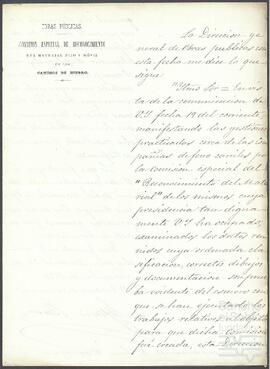 OBRAS PÚBLICAS.
COMISION ESPECIAL DE RECONOCIMIENTO
DEL MATERIAL FIJO Y MÓVIL
DE LOS
CAMINOS DE HIERRO.
La Direccion ge-
neral de Obras publicas con
esta fecha me dice lo que
sigue
"Ilmo Sor = En vis-
ta de la comunicacion de
V.I. fecha 19 del corriente,
manifestando las gestiones
practicadas cerca de las com-
pañias de ferro-carriles por
la comision especial del
"Reconocimiento del Mate-
rial" de los mismos cuya
presidencia tan digna-
mente V.I. ha
examinados los datos reu-
nidos cuya ordenada cla-
sificacion, correctos dibujos
y documentacion
la evidente del esmero con
que se han ejecutado los
trabajos relativos al objeto
para que dicha Comision
fué creada, esta Direccion